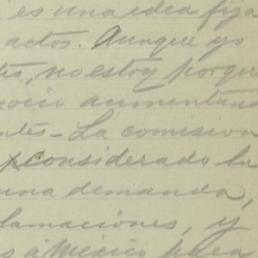 es una idea fija
actos. Aunque yo
no estoy porque
aumentan
La comision
considerado la
una demanda,
lamaciones, y
á Mexico para